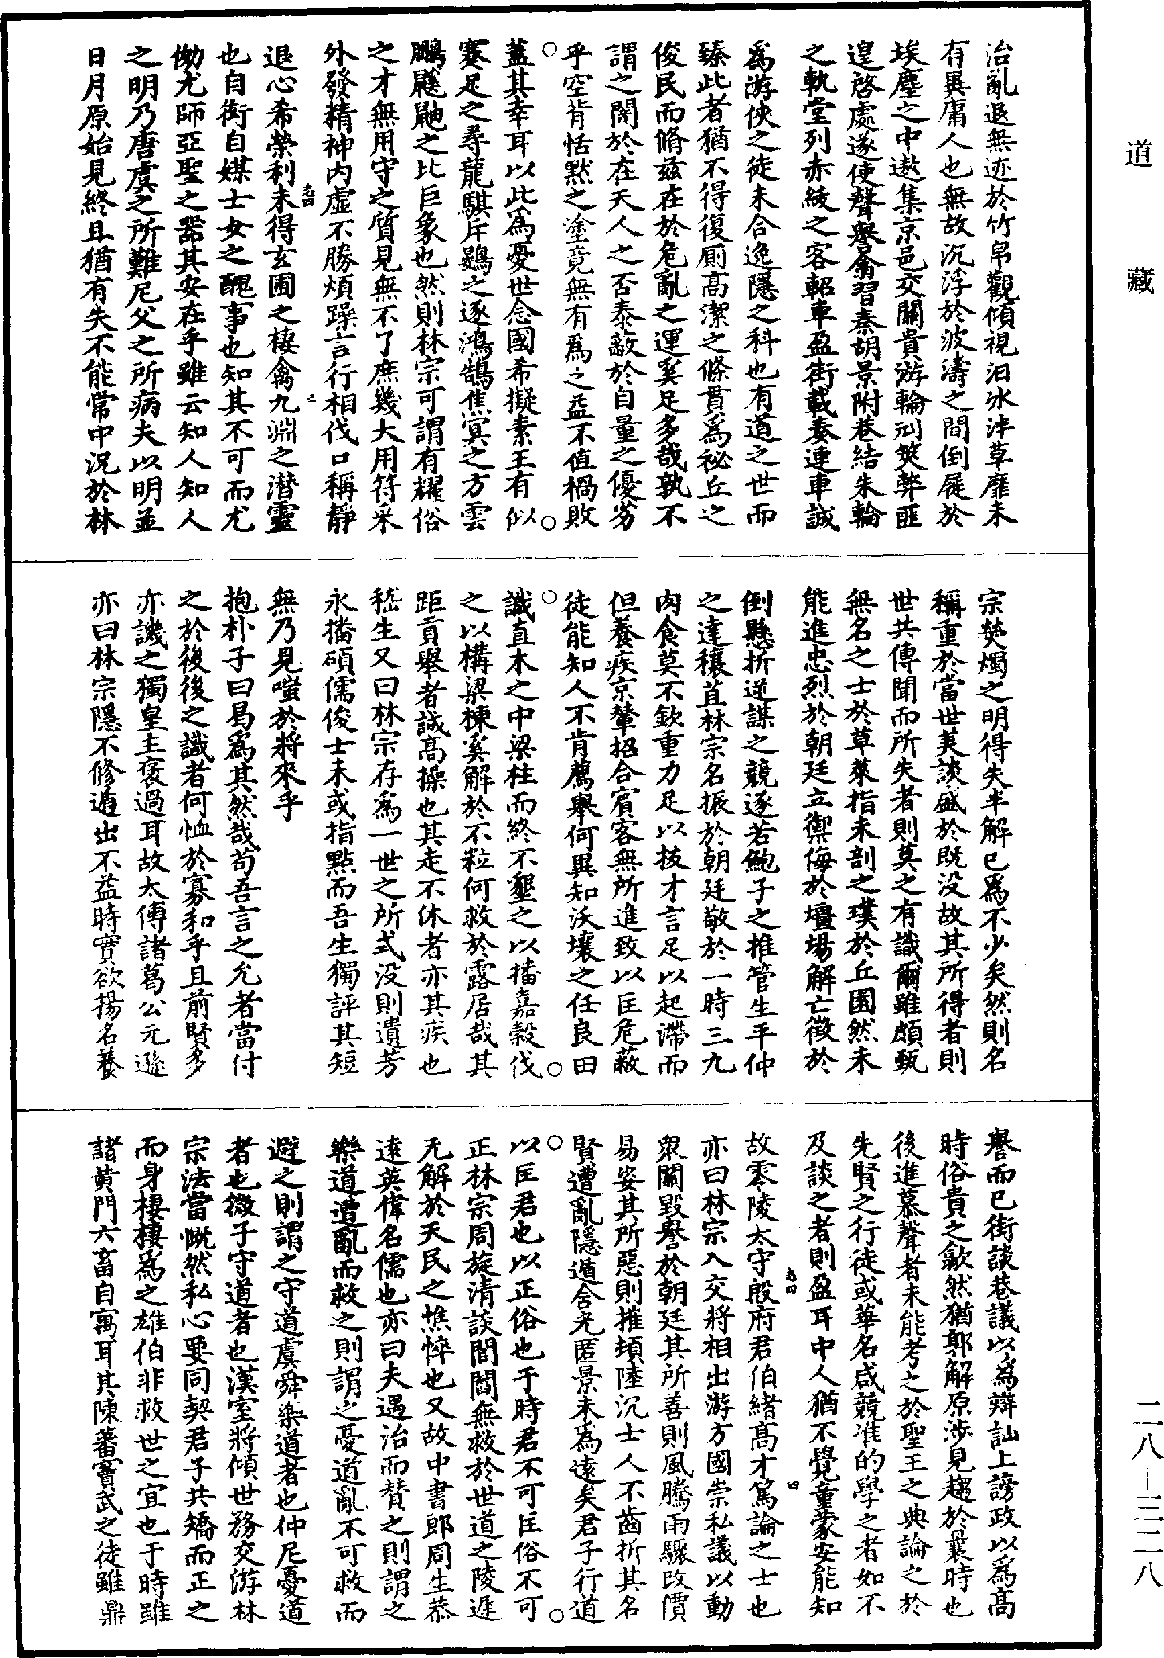 道藏
二八—三二八
治亂退無迹於竹帛觀傾視汨冰泮草靡未
有異庸人也無故沉浮於波濤之間倒屣於
埃塵之中遨集京邑交關貴游輪刓筴弊匪
遑啓處遂使聲譽翕習秦胡景附巷結朱輪
之軌堂列赤紱之客軺車盈街載奏連車誠
爲游俠之徒未合逸隱之科也有道之世而
臻此者猶不得復廁高潔之條貫爲祕丘之
俊民而脩茲在於危亂之運奚足多哉孰不
謂之闇於在天人之否泰蔽於自量之優劣
乎空肯恬默之塗竟無有爲之益不值禍敗
蓋其幸耳以此爲憂世念國希擬素王有似
蹇足之尋龍騏斥鷃之逐鴻鵠焦冥之方雲
鵬鼷鼬之比巨象也然則林宗可謂有耀俗
之才無用守之質見無不了庶幾大用符采
外發精神内虛不勝煩躁言行相伐口稱靜
退心希榮利未得玄圃之棲禽九淵之潜靈
也自衒自媒士女之醜事也知其不可而尤
慟尤師亞聖之器其安在乎雖云知人知人
之明乃唐虞之所難尼父之所病夫以明並
日月原始見終且猶有失不能常中況於林
宗熒燭之明得失半解已爲不少矣然則名
稱重於當世美談盛於既没故其所得者則
世共傳聞而所失者則莫之有識爾雖頗甄
無名之士於草萊指未剖之璞於丘園然未
能進忠烈於朝廷立禦侮於壇場解亡徵於
倒懸折逆謀之競逐若鮑子之推管生平仲
之達穰苴林宗名振於朝廷敬於一時三九
肉食莫不欽重力足以拔才言足以起滯而
但養疾京輦招合賓客無所進致以匡危蔽
徒能知人不肯薦舉何異知沃壤之任良田
識直木之中梁柱而終不墾之以播嘉穀伐
之以構梁棟奚解於不粒何救於露居哉其
距貢舉者誠高操也其走不休者亦其疾也
嵇生又曰林宗存爲一世之所式没則遺芳
永播碩儒俊士未或指點而吾生獨評其短
無乃見嗤於將來乎
抱朴子曰曷爲其然哉苟吾言之允者當付
之於後後之識者何恤於寡和乎且前賢多
亦譏之獨皇主褒過耳故太傅諸葛公元遜
亦曰林宗隱不修遁出不益時實欲揚名養
譽而已街談巷議以爲辯訕上謗政以爲高
時俗貴之歙然猶郭解原涉見趨於曩時也
後進慕聲者未能考之於聖王之典論之於
先賢之行徒惑華名咸競准的學之者如不
及談之者則盈耳中人猶不覺童蒙安能知
故零陵太守殷府君伯緒高才篤論之士也
亦曰林宗入交將相出游方國崇私議以動
衆關毀譽於朝廷其所善則風騰雨驟改價
易姿其所惡則摧頓陸沉士人不齒折其名
賢遭亂隱遁含光匿景未爲遠矣君子行道
以匡君也以正俗也于時君不可匡俗不可
正林宗周旋清談閭閻無救於世道之陵遲
无解於天民之憔悴也又故中書郎周生恭
遠英偉名儒也亦曰夫遇治而贊之則謂之
樂道遭亂而救之則謂之憂道亂不可救而
避之則謂之守道虞舜樂道者也仲尼憂道
者也微子守道者也漢室將傾世務交游林
宗法當慨然私心要同契君子共矯而正之
而身棲棲爲之雄伯非救世之宜也于時雖
諸黄門六畜自寓耳其陳蕃竇武之徒雖鼎